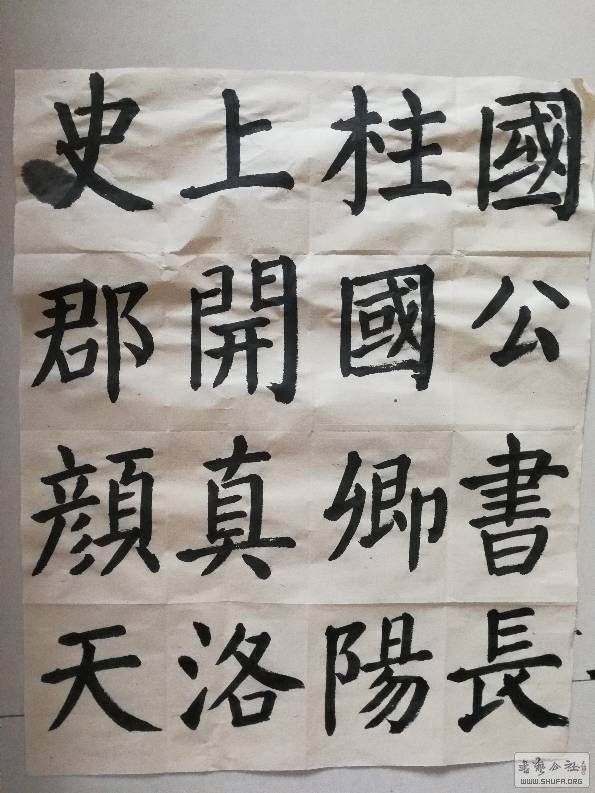 史上柱國
郡開國公
顔真卿書
天洛陽長
书艺公社
WWW.SHUFA.ORG